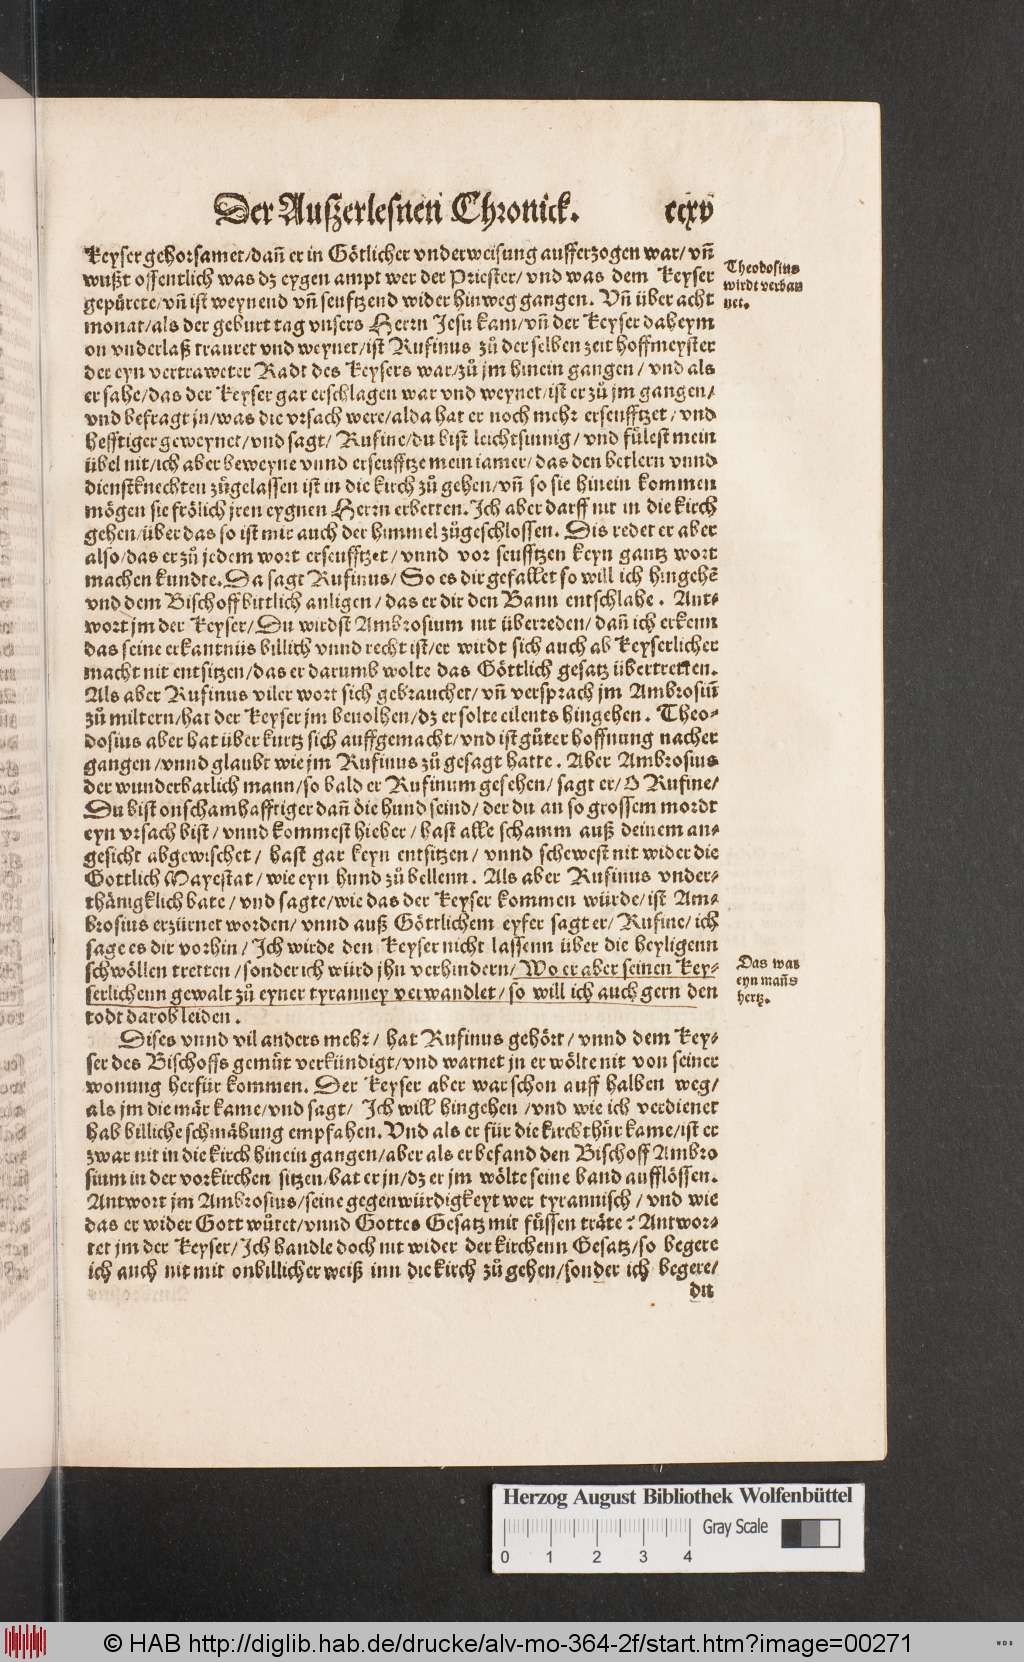 Der Außerlesnen Chronick. ccxv
Keyser gehorsamet/dañ er in Götlicher vnderweisung aufferzogen war/vñ
wußt offentlich was dz eygen ampt wer der Priester/vnd was dem Keyser
gepürete/vñ ist weynend vñ seufftzend wider hinweg gangen. Vñ über acht
monat/als der geburt tag vnsers Herrn Jesu kam/vñ der Keyser daheym
on vnderlaß trauret vnd weynet/ist Rufinus zů der selben zeit hoffmeyster
der eyn vertraweter Radt des Keysers war/zů jm hinein gangen/vnd als
er sahe/das der Keyser gar erschlagen war vnd weynet/ist er zů jm gangen/
vnd befragt jn/was die vrsach were/alda hat er noch mehr erseufftzet/vnd
hefftiger geweynet/vnd sagt/ Rufine/du bist leichtsinnig/vnd fülest mein
übel nit/ich aber beweyne vnnd erseufftze mein iamer/das den betlern vnnd
dienstknechten zůgelassen ist in die kirch zů gehen/vñ so sie hinein kommen
mögen sie frölich jren eygnen Herrn erbetten. Ich aber darff nit in die kirch
gehen/über das so ist mir auch der himmel zůgeschlossen. Dis redet er aber
also/das er zů jedem wort erseufftzet/vnnd vor seufftzen keyn gantz wort
machen kundte. Da sagt Rufinus/So es dir gefallet so will ich hingehē
vnd dem Bischoff bittlich anligen/das er dir den Bann entschlahe. Ant-
wort jm der Keyser/Du wirdst Ambrosium nit überreden/dañ ich erkenn
das seine erkantnüs billich vnnd recht ist/er wirdt sich auch ab Keyserlicher
macht nit entsitzen/das er darumb wolte das Göttlich gesatz übertretten.
Als aber Rufinus viler wort sich gebrauchet/vñ versprach jm Ambrosiū
zů miltern/hat der Keyser jm beuolhen/dz er solte eilents hingehen. Theo-
dosius aber hat über kurtz sich auffgemacht/vnd ist gůter hoffnung nacher
gangen/vnnd glaubt wie jm Rufinus zů gesagt hatte. Aber Ambrosius
der wunderbarlich mann/so bald er Rufinum gesehen/sagt er/O Rufine/
Du bist onschamhafftiger dañ die hund seind/der du an so grossem mordt
eyn vrsach bist/vnnd kommest hieher/hast alle schamm auß deinem an-
gesicht abgewischet/ hast gar keyn entsitzen/ vnnd schewest nit wider die
Gottlich Mayestat/wie eyn hund zů bellenn. Als aber Rufinus vnder-
thänigklich bate/vnd sagte/wie das der Keyser kommen würde/ist Am-
brosius erzürnet worden/vnnd auß Göttlichem eyfer sagt er/Rufine/ich
sage es dir vorhin/Ich wirde den Keyser nicht lassenn über die heyligenn
schwöllen tretten/sonder ich würd jhn verhindern/Wo er aber seinen Key-
serlichenn gewalt zů eyner tyranney verwandlet/so will ich auch gern den
todt darob leiden.
Dises vnnd vil anders mehr/ hat Rufinus gehört/ vnnd dem Key-
ser des Bischoffs gemüt verkündigt/vnd warnet jn er wölte nit von seiner
wonung herfür kommen. Der Keyser aber war schon auff halben weg/
als jm die mär kame/vnd sagt/ Ich will hingehen/vnd wie ich verdienet
hab billiche schmähung empfahen. Vnd als er für die kirchthür kame/ist er
zwar nit in die kirch hinein gangen/aber als er befand den Bischoff Ambro
sium in der vorkirchen sitzen/bat er jn/dz er jm wölte seine band aufflössen.
Antwort jm Ambrosius/seine gegenwürdigkeyt wer tyrannisch/vnd wie
das er wider Gott wütet/vnnd Gottes Gesatz mit füssen träte? Antwor-
tet jm der Keyser/Ich handle doch nit wider der kirchenn Gesatz/so begere
ich auch nit mit onbillicher weiß inn die kirch zů gehen/sonder ich begere/
du
Theodosius
wirdt verban
net.
Das was
eyn mañs
hertz.
Herzog August Bibliothek Wolfenbüttel
Gray Scale
0 1 2 3 4
© HAB http://diglib.hab.de/drucke/alv-mo-364-2f/start.htm?image=00271